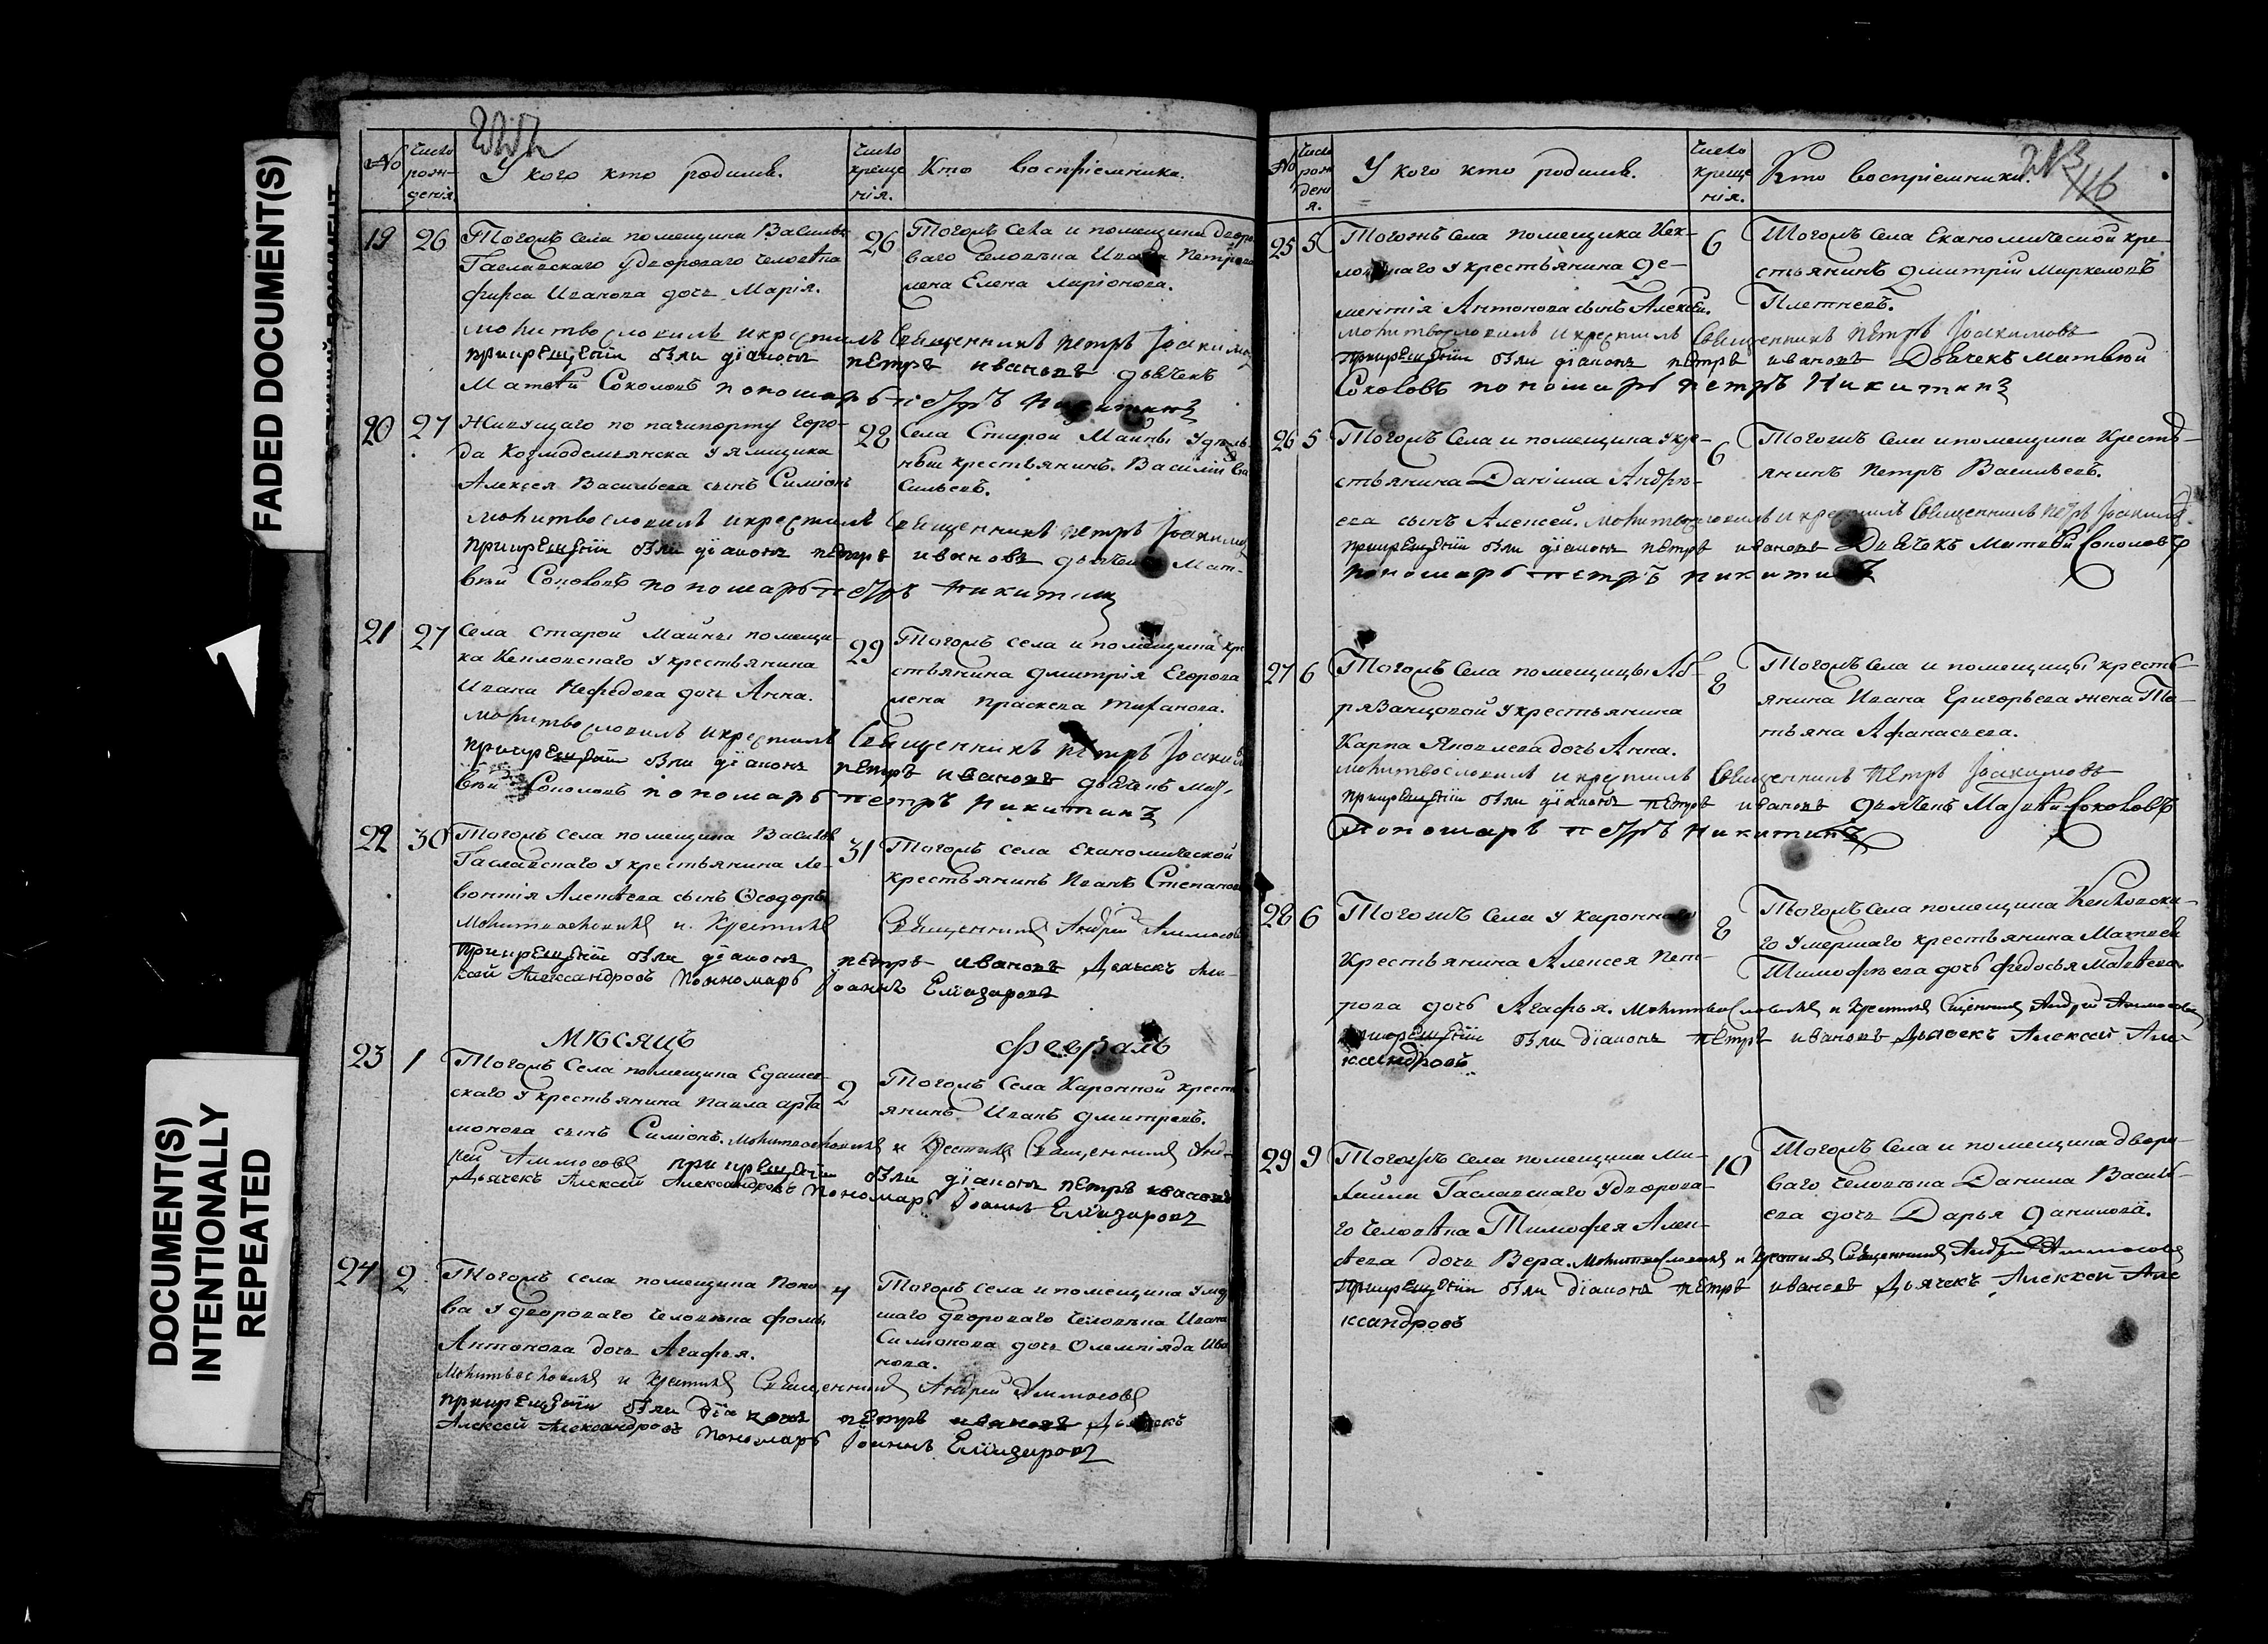 FADED DOCUMENT(S)
DOCUMENT(S)
INTENTIONALLY
REPEATED
№
Число рож-
денія
У кого кто родился.
Число
креще
нія.
Кто воспріемники.
19
26
Тогожъ села помещика Василья
Гаславскаго у двороваго человѣка
Фирса Иванова дочь Марія.
26
Тогожъ села и помещика дворо
ваго человѣка Ивана Петрова
жена Елена Ларіонова.
молитвословилъ и крестилъ Священникъ Петръ Іоакимов
при крещеніи были діаконъ Петръ Ивановъ дьячекъ
Матвѣй Соколовъ пономарь Петръ Никитинъ
20
27
Живущаго по пачпорту горо-
да Козмодемьянска у ямщика
Алексея Васильева сынъ Симіонъ
28
Села Старой Майны удѣль-
ный крестьянинъ Василій Ва
сильевъ.
молитвословилъ и крестилъ Священникъ Петръ Іоакимов
при крещеніи были діаконъ Петръ Ивановъ дьячекъ Мат-
вѣй Соколовъ пономарь Петръ Никитин
21
27
Села Старой Майны помещи-
ка Кенловскаго у крестьянина
Ивана Нефедова дочь Анна.
29
Тогожъ села и помещика кре
стьянина Дмитрія Егорова
жена Праскева
молитвословилъ и крестилъ Священникъ Петръ Іоакимов
при крещеніи были діаконъ Петръ Ивановъ дьячекъ Мат
вѣй Соколовъ пономарь Петръ Никитинъ
22
30
Тогожъ села помещика Василья
Гаславскаго у крестьянина Ле-
вонтія Алексѣева сынъ Ѳеодоръ
31
Тогожъ села Економической
крестьянинъ Иванъ Степанов
Молитвословилъ и Крестилъ Священникъ Андрей Аммосовъ
При крещеніи были діаконъ Петръ Ивановъ Дьячекъ Але-
ксѣй Александровъ Пономарь Іоаннъ Елиазаровъ
Мѣсяцъ Февраль
23
1
Тогожъ села помещика Едашев-
скаго у крестьянина Павла Арта
монова сынъ Симіонъ.
2
Тогожъ Села Каронной крест
янинъ Иванъ Дмитревъ.
Молитвословилъ и Крестилъ Священникъ Анд-
рей Аммосовъ при крещеніи были діаконъ Петръ Ивановъ
Дьячекъ Алексѣй Александровъ Пономарь Іоаннъ Елиазаровъ
24
2
Тогожъ села помещика Попо-
ва у двороваго человѣка Фомы
Антонова дочь Агафья.
4
Тогожъ села и помещика умер
шаго двороваго человѣка Ивана
Симіонова дочь Олемпіяда Ива
нова.
Молитвословилъ и Крестилъ Священникъ Андрей Аммосовъ
при крещеніи были діаконъ Петръ Ивановъ Дьячекъ
Алексѣй Александровъ Пономарь Іоаннъ Елиазаровъ
№
Число
рож
дені
я.
У кого кто родился.
Число
креще
нія.
Кто воспріемники.
116
25
5
Тогожъ села помещика Кен-
ловскаго у крестьянина Де-
ментія Антонова сынъ Алексѣй.
6
Тогожъ села Економической кре-
стьянинъ Дмитрій Маркеловъ
Плетневъ.
молитвословилъ и крестилъ Священникъ Петръ Іоакимовъ
при крещеніи были діаконъ Петръ Ивановъ Дьячекъ Матвѣй
Соколовъ пономарь Петръ Никитинъ
26
5
Тогожъ Села и помещика у кре-
стьянина Даніила Андрѣ-
ева сынъ Алексей.
6
Тогожъ Села и помещика Кресть-
янинъ Петръ Васильевъ.
молитвословилъ и крестилъ Священникъ Петръ Іоакимов
при крещеніи были діаконъ Петръ Ивановъ Дьячекъ Матвѣй Соколовъ
пономарь Петръ Никитинъ
27
6
Тогожъ Села помещицы Аб-
рязанцовой у крестьянина
Карпа Яковлева дочь Анна.
8
Тогожъ Села и помещицы кресть-
янина Ивана Григорьева жена Та-
тьяна Афанасьева.
молитвословилъ и крестилъ Священникъ Петръ Іоакимовъ
при крещеніи были діаконъ Петръ Ивановъ дьячекъ Матвѣй Соколовъ
Пономарь Петръ Никитинъ
28
6
Тогожъ села у каронного
Крестьянина Алексея Пет-
рова дочь Агафья.
8
Тогожъ Села помещика Кенловска-
го умершаго крестьянина Матвея
Тимофеева дочь Федосья Матвѣева
Молитвословилъ и Крестилъ Священникъ Андрей Аммосовъ
при крещеніи были діаконъ Петръ Ивановъ Дьячекъ Алексѣй Але-
ксандровъ
29
9
Тогожъ села помещика Ми-
хайлы Гаславскаго у дворова-
го человѣка Тимофея Алек-
сѣева дочь Вера.
10
Тогожъ Села и помещика дворо-
ваго человѣка Данила Василь-
ева дочь Дарья Данилова.
Молитвословилъ и Крестилъ Священникъ Андрей Аммосовъ
При крещеніи были діаконъ Петръ Ивановъ Дьячекъ Алексѣй Але
ксандровъ